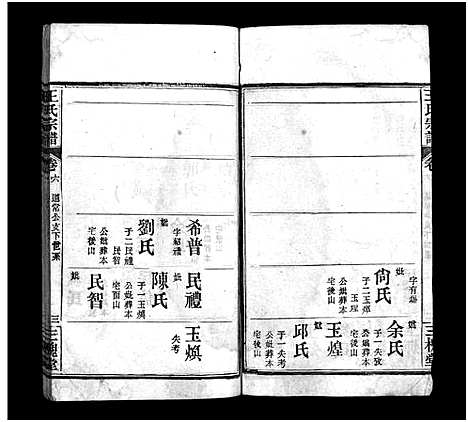 王氏宗譜
卷
三槐堂
字有
妣
尙氏
子二玉煌
玉珵
公妣葬本
宅後山
妣
余氏
子一失攷
公妣葬本
宅後山
玉煌
妣
邱氏
子一失考
公妣葬本
宅後山
希普
妣
劉氏
子二民禮
民智
公妣葬本
宅後山
民禮
妣
陳氏
子一玉煥
公妣葬本
宅面山
玉煥
失考
民智
妣
王氏宗譜
卷六
道常公支下世系
三
三槐堂